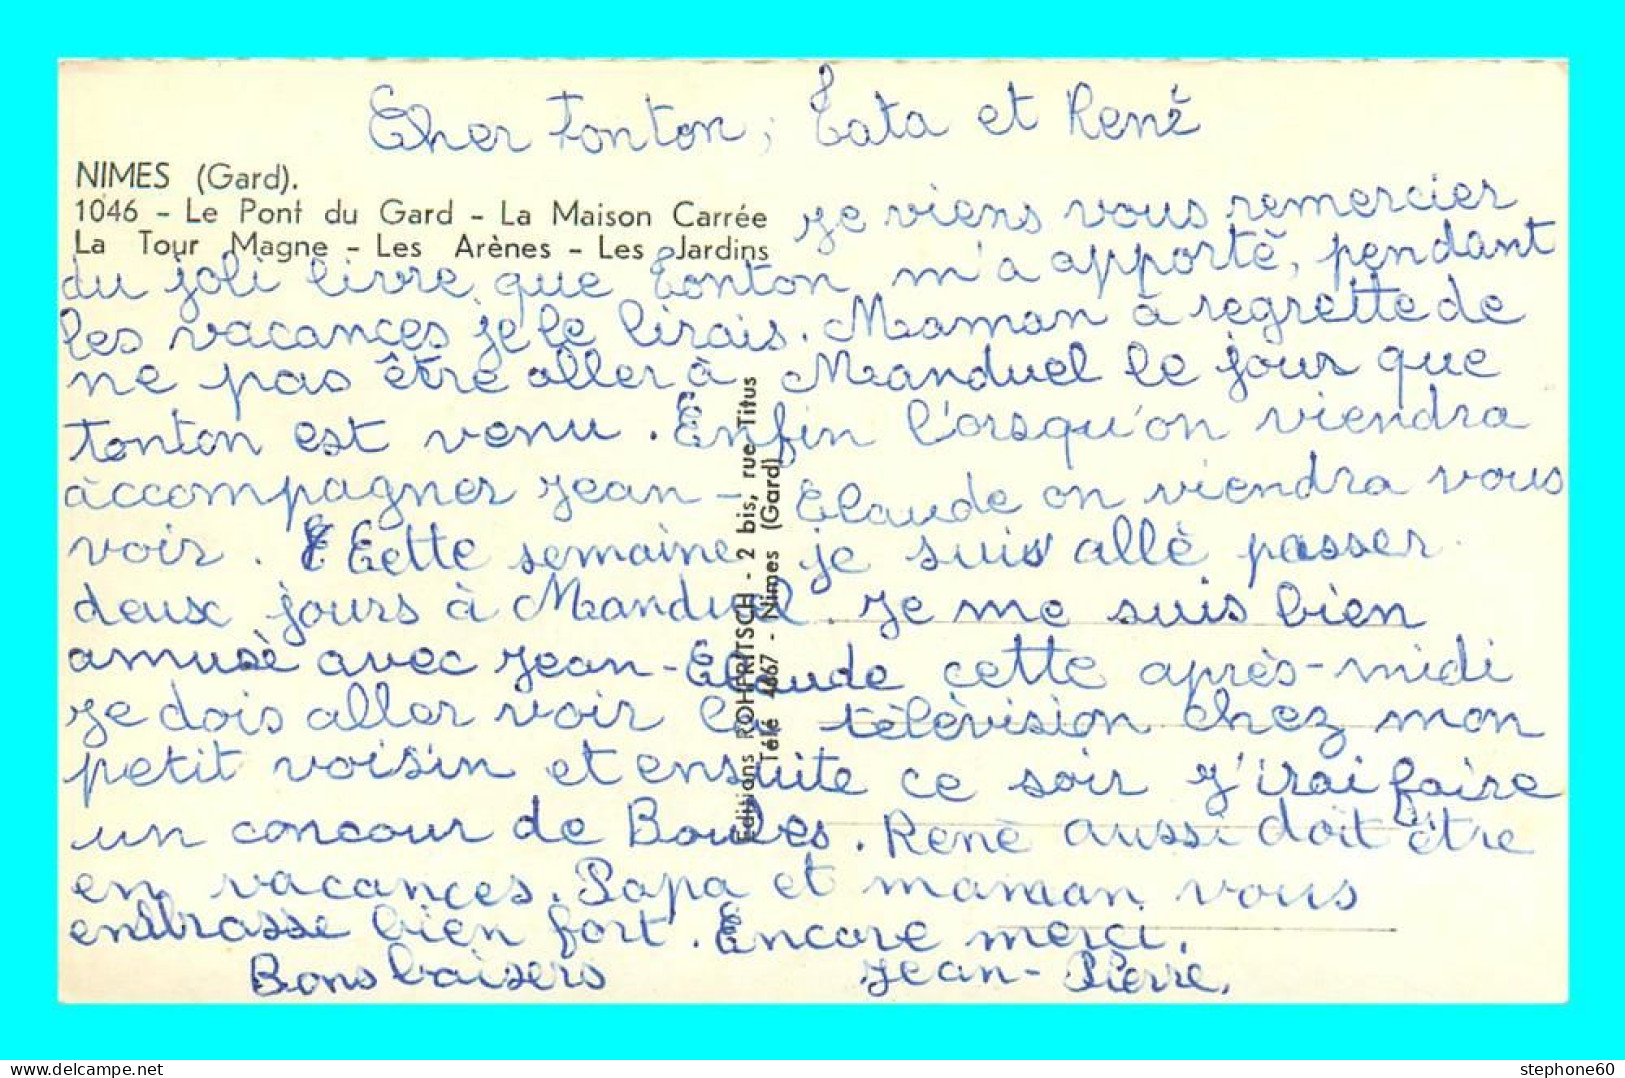 Cher Tonton, Tata et René
NIMES (Gard).
1046 - Le Pont du Gard - La Maison Carrée
La Tour Magne - Les Arènes - Les Jardins
je viens vous remercier
du joli livre que tonton m'a apporté, pendant
les vacances je le lirais. Maman à regrette de
ne pas être aller à Manduel le jour que
tonton est venu. Enfin l'orsqu'on viendra
àccompagner jean-Claude on viendra vous
voir. Cette semaine je suis allé passer
deux jours à Manduel. je me suis bien
amusè avec jean-Claude cette après-midi
je dois aller voir la tèlèvision chez mon
petit voisin et ensuite ce soir j'irai faire
un concour de Boules. Renè aussi doit être
en vacances. Papa et maman vous
embrasse bien fort. Encore merçi.
Bons baisers jean-Pierre.
Editions ROHFRITSCH - 2 bis, rue Titus
Télé 4667 - Nimes (Gard)
stephone60